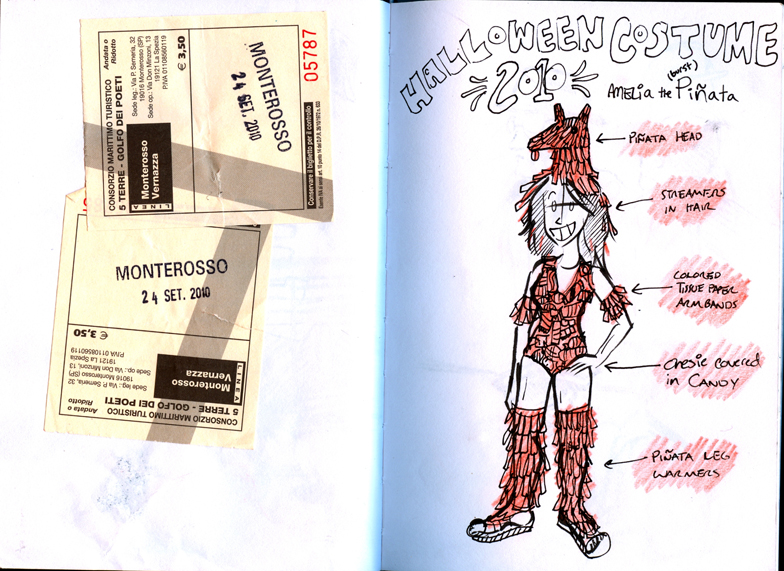 CONSORZIO MARITTIMO TURISTICO
5 TERRE - GOLFO DEI POETI
Andata o
Ridotto
Sede leg.: Via P. Semeria, 32
19016 Monterosso (SP)
Sede op.: Via Don Minzoni, 13
19121 La Spezia
P.IVA 01108560119
LINEA
Monterosso
Vernazza
€ 3,50
MONTEROSSO
24 SET. 2010
05787
Conservare il biglietto per il controllo
MONTEROSSO
24 SET. 2010
€ 3,50
CONSORZIO MARITTIMO TURISTICO
5 TERRE - GOLFO DEI POETI
Andata o
Ridotto
Sede leg.: Via P. Semeria, 32
19016 Monterosso (SP)
Sede op.: Via Don Minzoni, 13
19121 La Spezia
P.IVA 0110856011
LINEA
Monterosso
Vernazza
HALLOWEEN COSTUME
2010
(burst)
AMELIA the PIÑATA
PIÑATA HEAD
STREAMERS
IN HAIR
COLORED
TISSUE PAPER
ARMBANDS
ONESIE COVERED
in CANDY
PIÑATA LEG
WARMERS